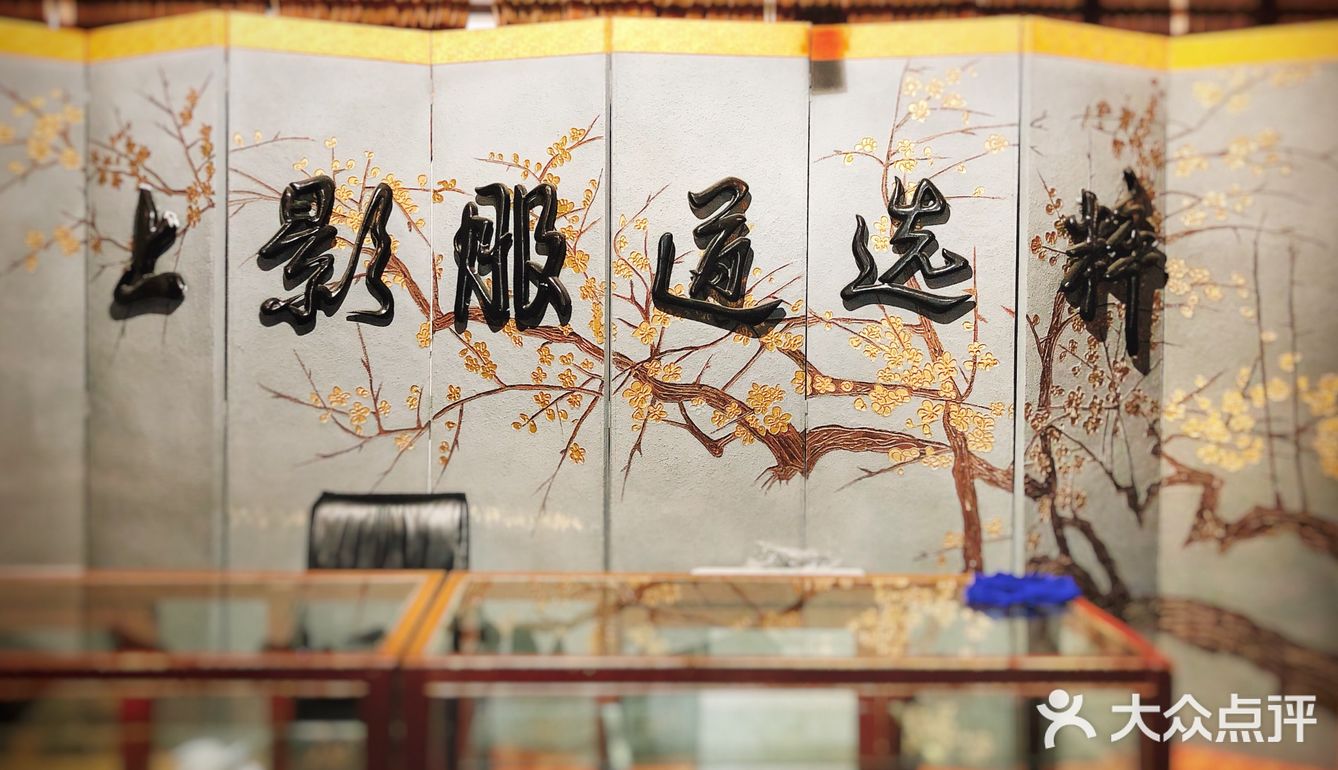 上影服道选粹
大众点评